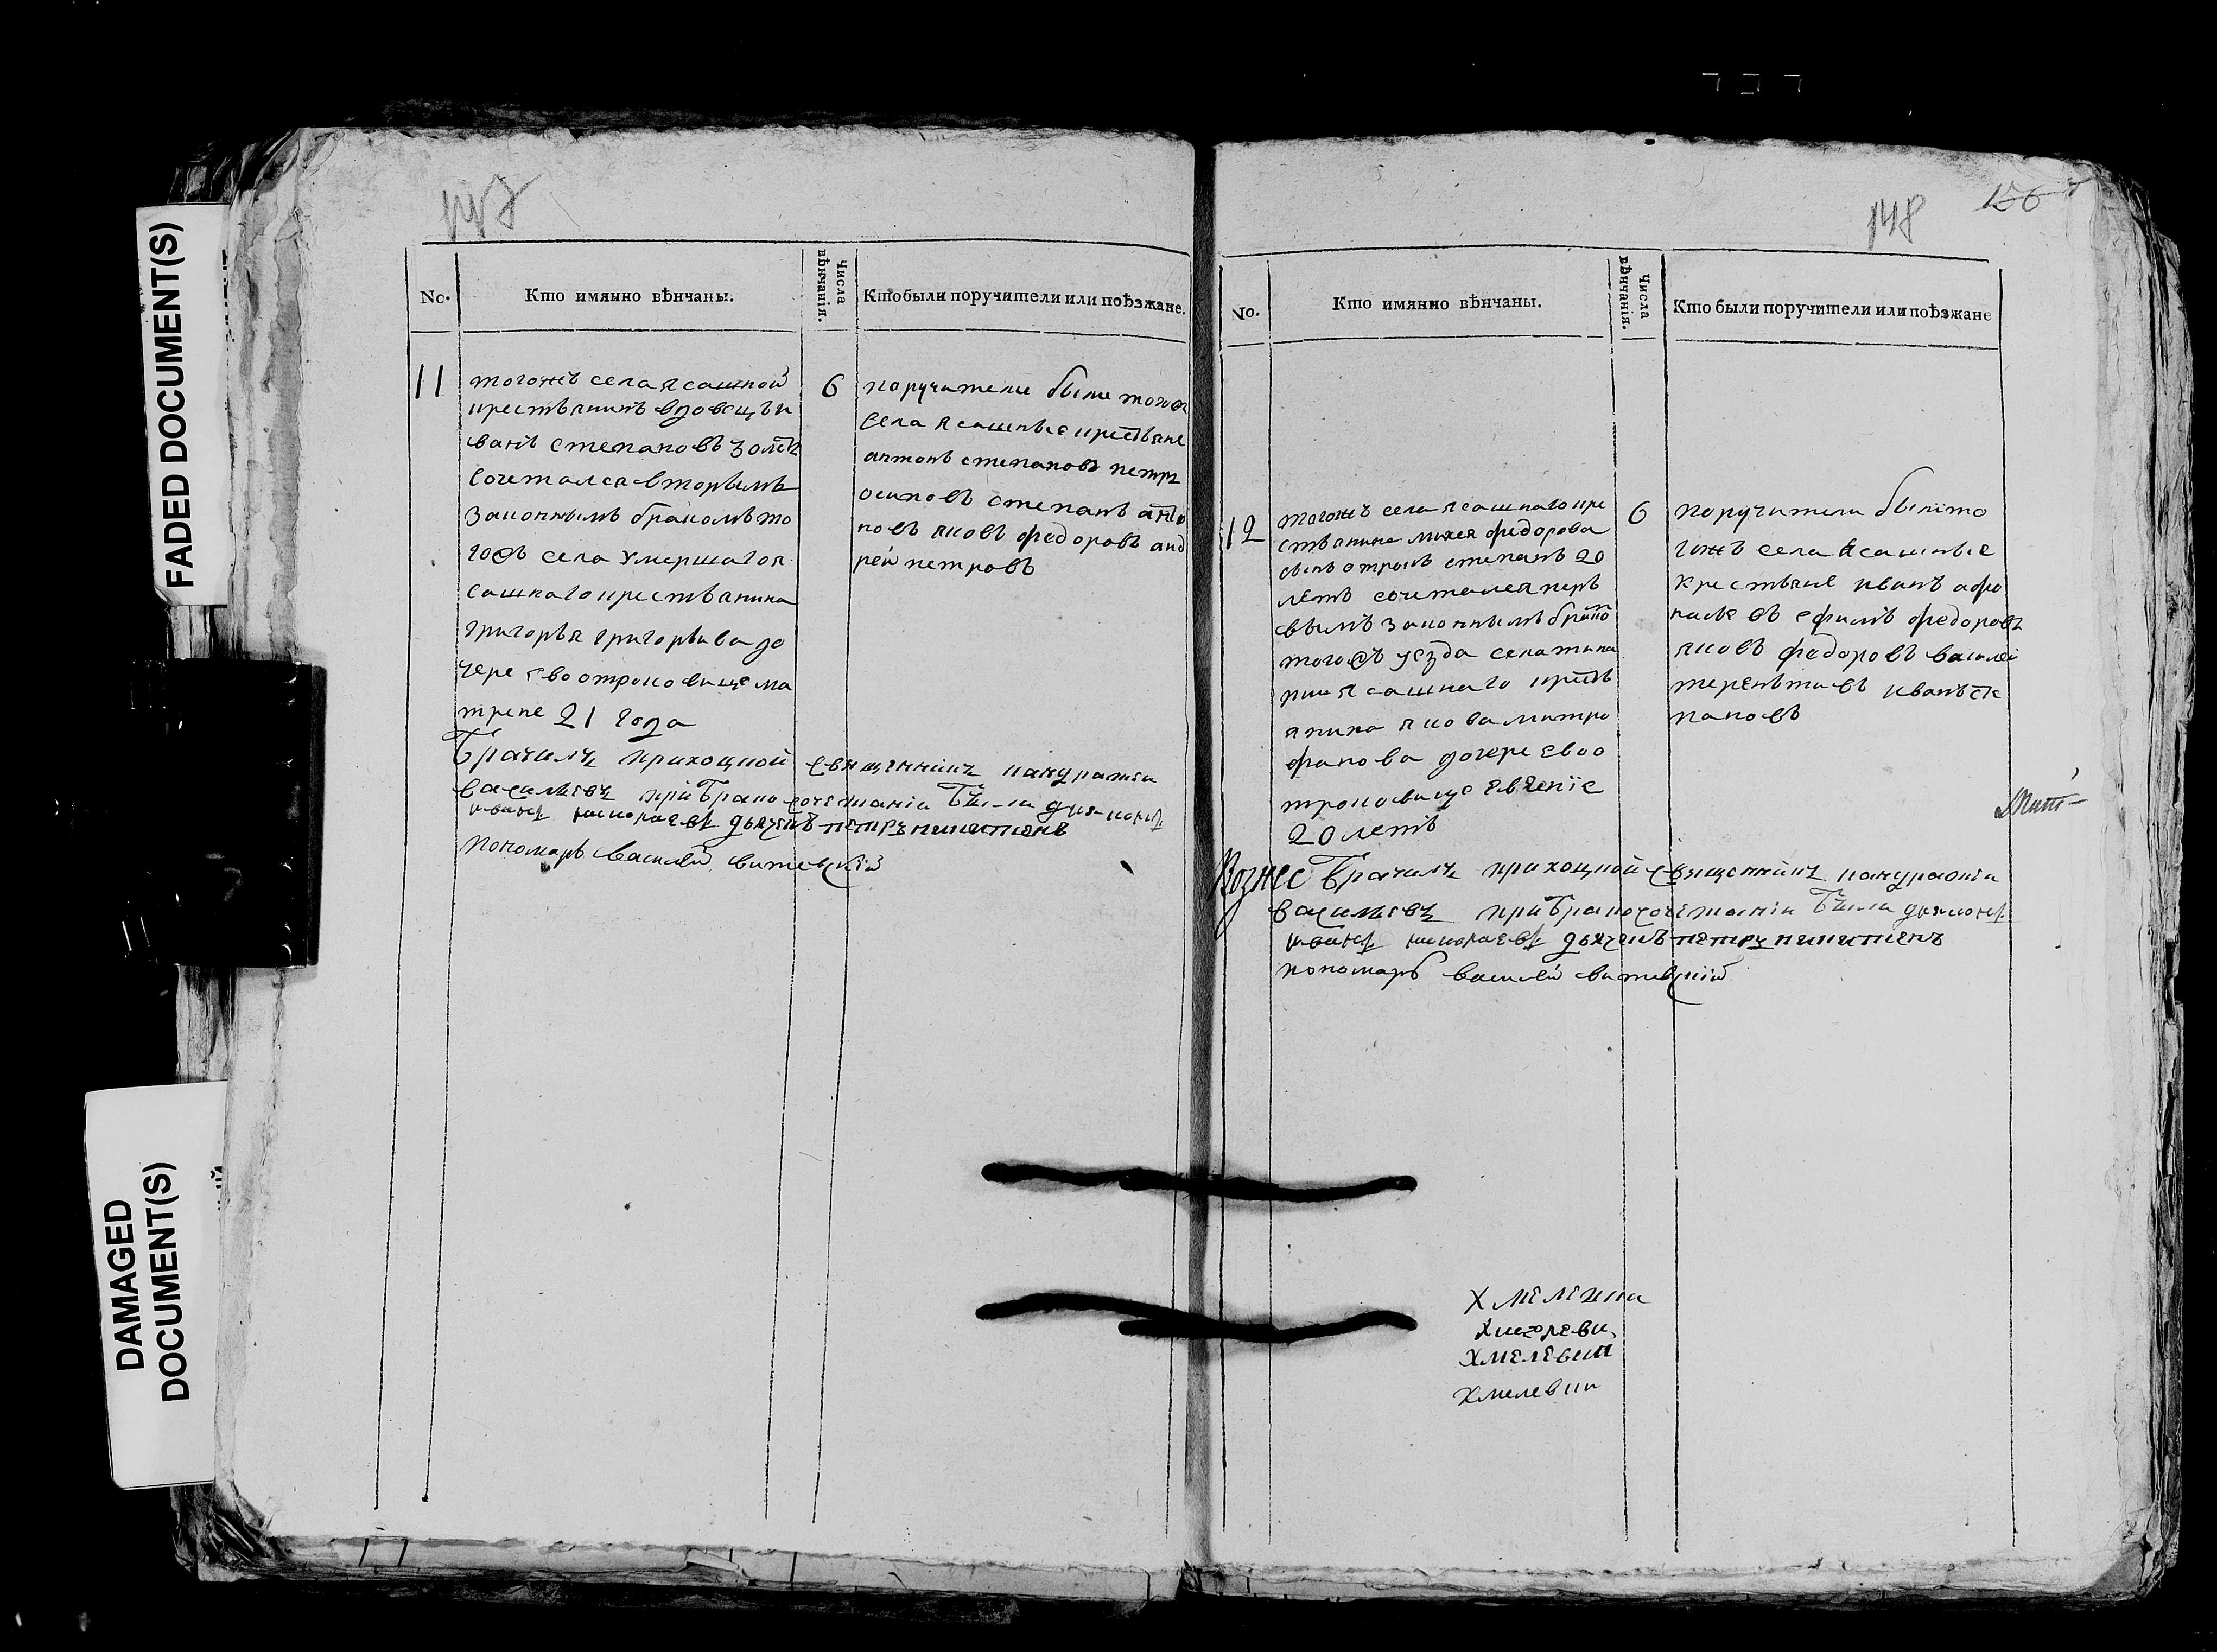 FADED DOCUMENT(S)
DAMAGED
DOCUMENT(S)
147
No.
Кто имянно вѣнчаны.
Числа
вѣнчанія.
Кто были поручители или поѣзжане.
11
тогожъ села ясашной
крестьянинъ вдовецъ и
ванъ степановъ 30 летъ
сочетался вторымъ
законнымъ бракомъ то
гожъ села умершаго я
сашнаго крестьянина
григорья григорьива до
черею отроковице ма
трене 21 года
6
поручители были тогож
села ясашные крестьяне
антонъ степановъ петръ
осиповъ степанъ анто
новъ яковъ федоровъ анд
рей петровъ
Брачилъ приходной священникъ кандратъ
василиевъ при бракосочетании были диаконъ
иванъ николаевъ дьячекъ петръ никитинъ
пономарь василий витевский
148
No.
Кто имянно вѣнчаны.
Числа
вѣнчанія.
Кто были поручители или поѣзжане
12
тогожъ села ясашнаго кре
стьянина михея федорова
сынъ отрокъ степанъ 20
летъ сочетался перъ
вымъ законнымъ брако
тогожъ уезда села
ясашнаго крестъ
янина якова митро
фанова дочерею о
троковицею евгение
20 летъ
6
поручители были то
гожъ села ясашные
крестьяне иванъ афо
насьевъ ефимъ федоровъ
яковъ федоровъ василей
терентиевъ иванъ сте
пановъ
Вознес
Брачилъ приходной священникъ кандратъ
василиевъ при бракосочетании были диаконъ
иванъ николаевъ дьячекъ петръ никитинъ
пономарь василей витевский